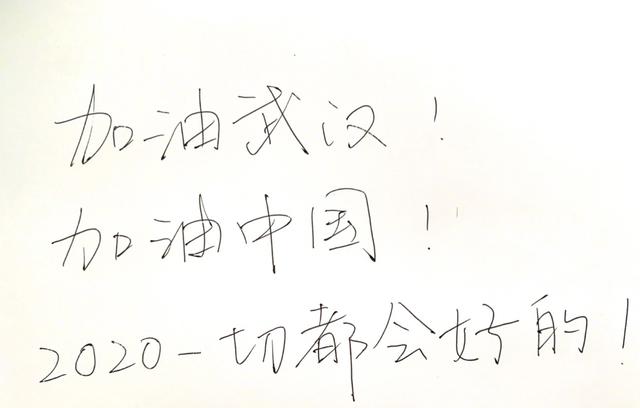 加油武汉！
加油中国！
2020一切都会好的！